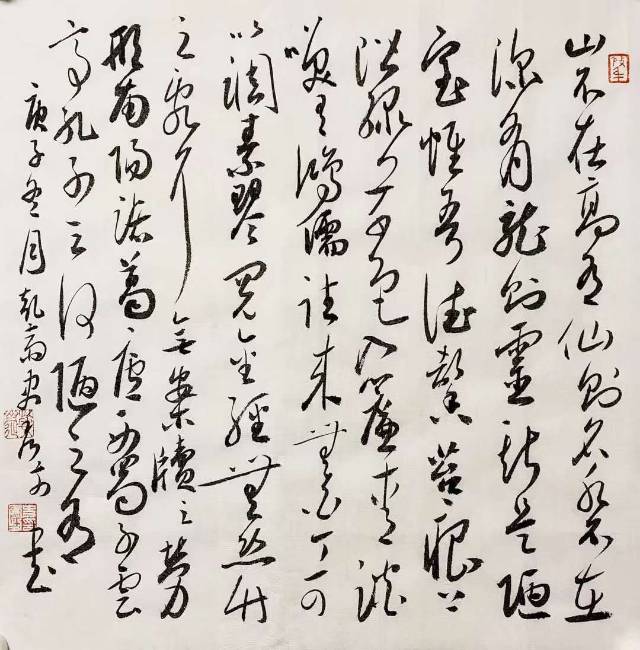 山不在高有仙則名水不在
深有龍則靈斯是陋
室惟吾德馨苔痕上
階綠草色入簾青談
笑有鴻儒往來無白丁可
以調素琴閱金經無絲竹
之亂耳無案牘之勞
形南陽諸葛廬西蜀子雲
亭孔子云何陋之有
庚子冬月 書